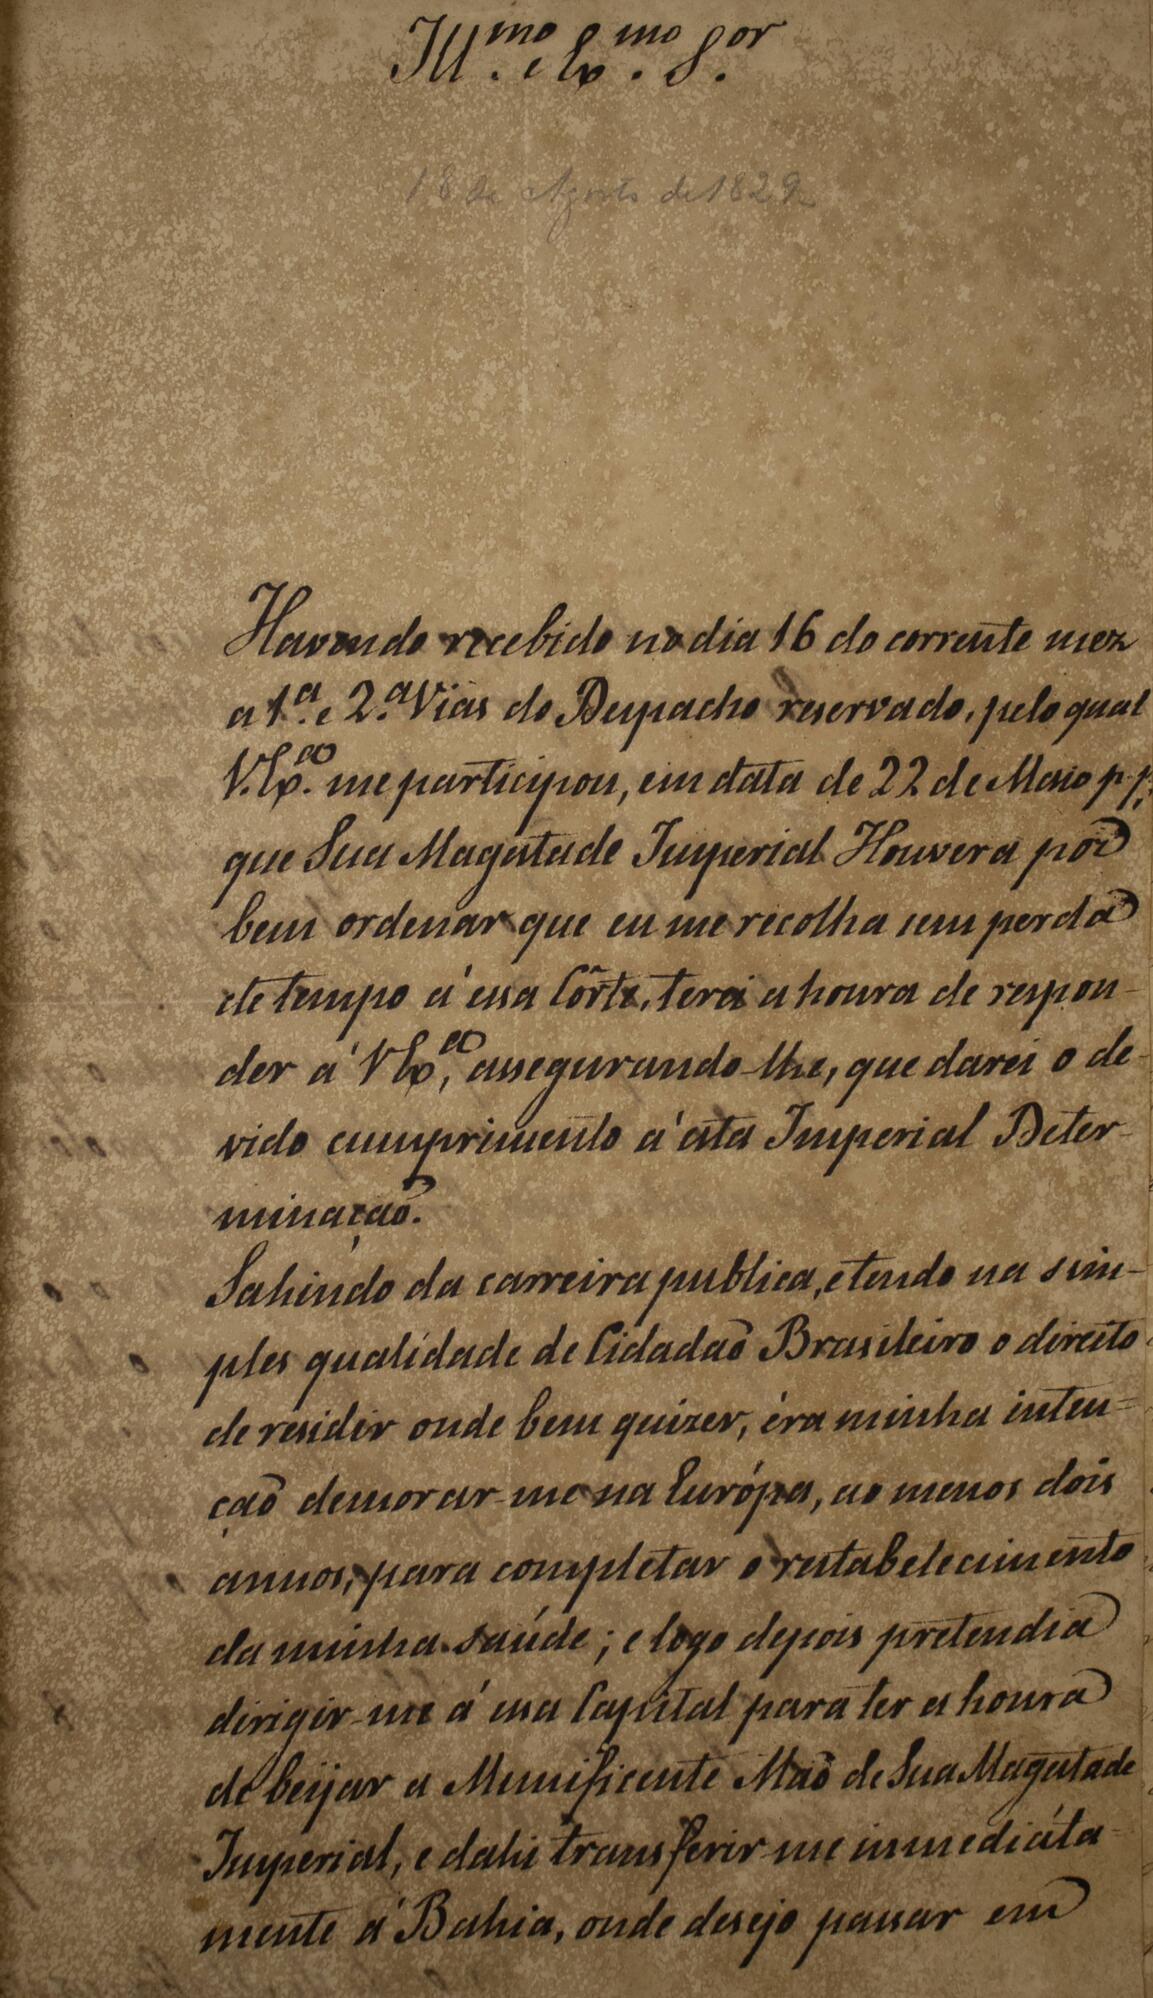 Ill.mo e Ex.mo S.or
18 de Agosto de 1829
Havendo recebido no dia 16 do corrente mez
a 1.a e 2.a Vias do Despacho reservado, pelo qual
V.Ex.a me participou, em data de 22 de Maio p.p.
que Sua Magestade Imperial Houvera por
bem ordenar que eu me recolha sem perda
de tempo á essa Côrte, terei a honra de respon-
der á V Ex.a, assegurando-lhe, que darei o de-
vido cumprimento á esta Imperial Deter-
minaçaõ.
Sahindo da carreira publica, e tendo na sim-
ples qualidade de Cidadaõ Brasileiro o direito
de residir onde bem quizer, éra minha inten=
çaõ demorar-me na Európa, ao menos dois
annos, para completar o restabelecimento
da minha saúde; e logo depois pretendia
dirigir-me á essa Capital para ter a honra
de beijar a Munificente Maõ de Sua Magestade
Imperial, e dahi transferir-me immediáta=
mente á Bahia, onde desejo passar em